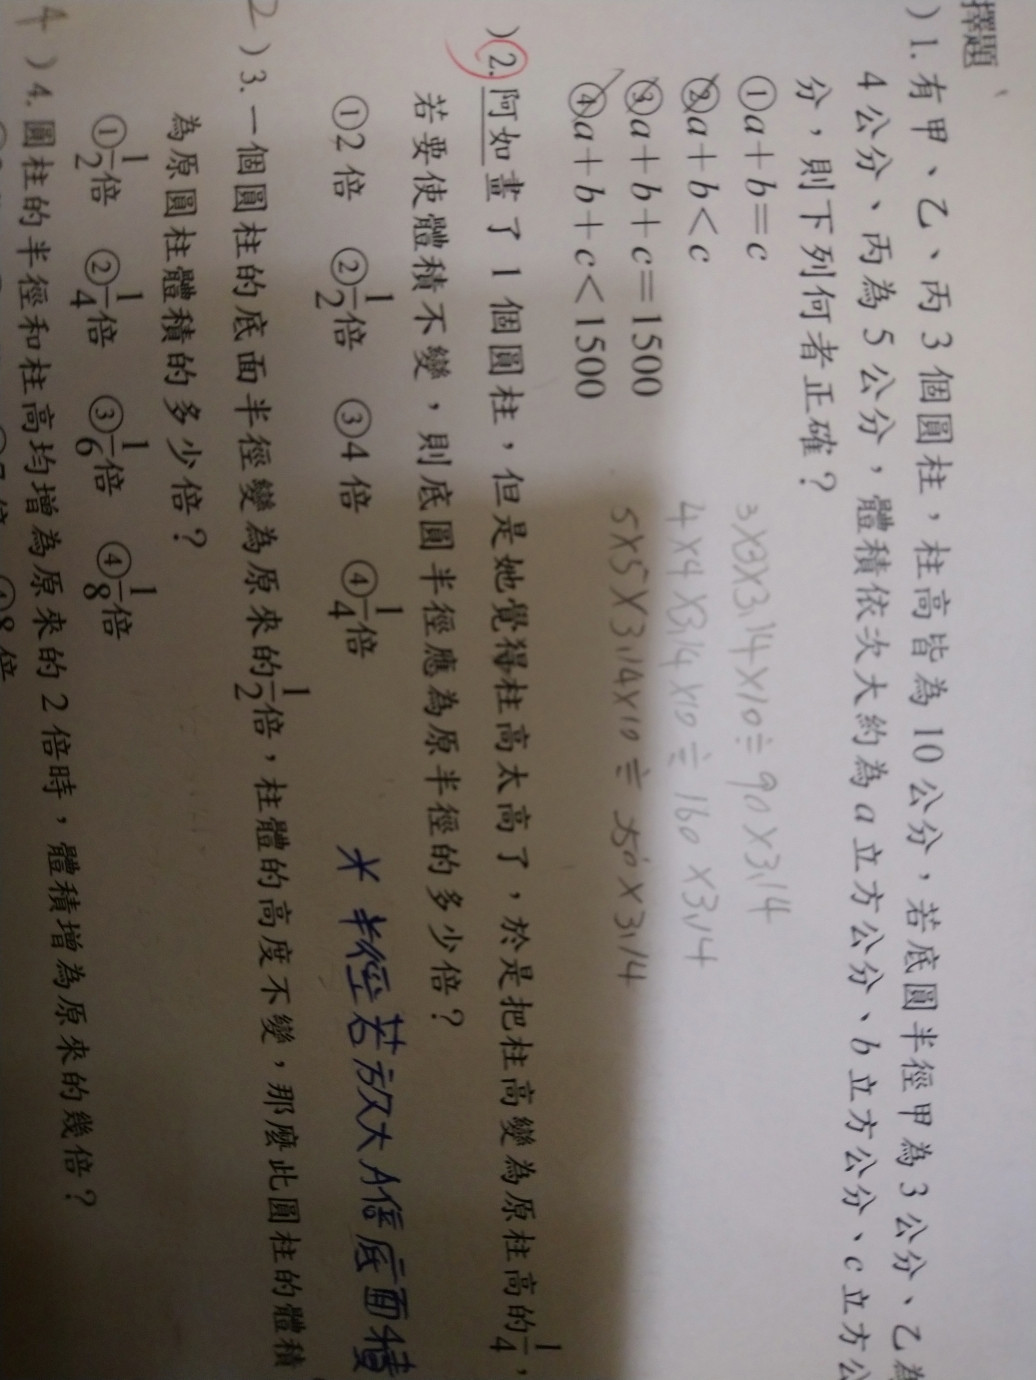 擇題
) 1. 有甲、乙、丙 3 個圓柱，柱高皆為 10 公分，若底圓半徑甲為 3 公分、乙為
4 公分、丙為 5 公分，體積依次大約為 a 立方公分、b 立方公分、c 立方公
分，則下列何者正確？
①a＋b＝c
②a＋b＜c
③a＋b＋c＝1500
④a＋b＋c＜1500
3×3×3.14×10≒90×3.14
4×4×3.14×10≒160×3.14
5×5×3.14×10≒250×3.14
) 2. 阿如畫了 1 個圓柱，但是她覺得柱高太高了，於是把柱高變為原柱高的1/4，
若要使體積不變，則底圓半徑應為原半徑的多少倍？
①2 倍 ②1/2倍 ③4 倍 ④1/4倍
＊半徑若放大A倍底面積
2 ) 3. 一個圓柱的底面半徑變為原來的1/2倍，柱體的高度不變，那麼此圓柱的體積
為原圓柱體積的多少倍？
①1/2倍 ②1/4倍 ③1/6倍 ④1/8倍
4 ) 4. 圓柱的半徑和柱高均增為原來的 2 倍時，體積增為原來的幾倍？
④8倍